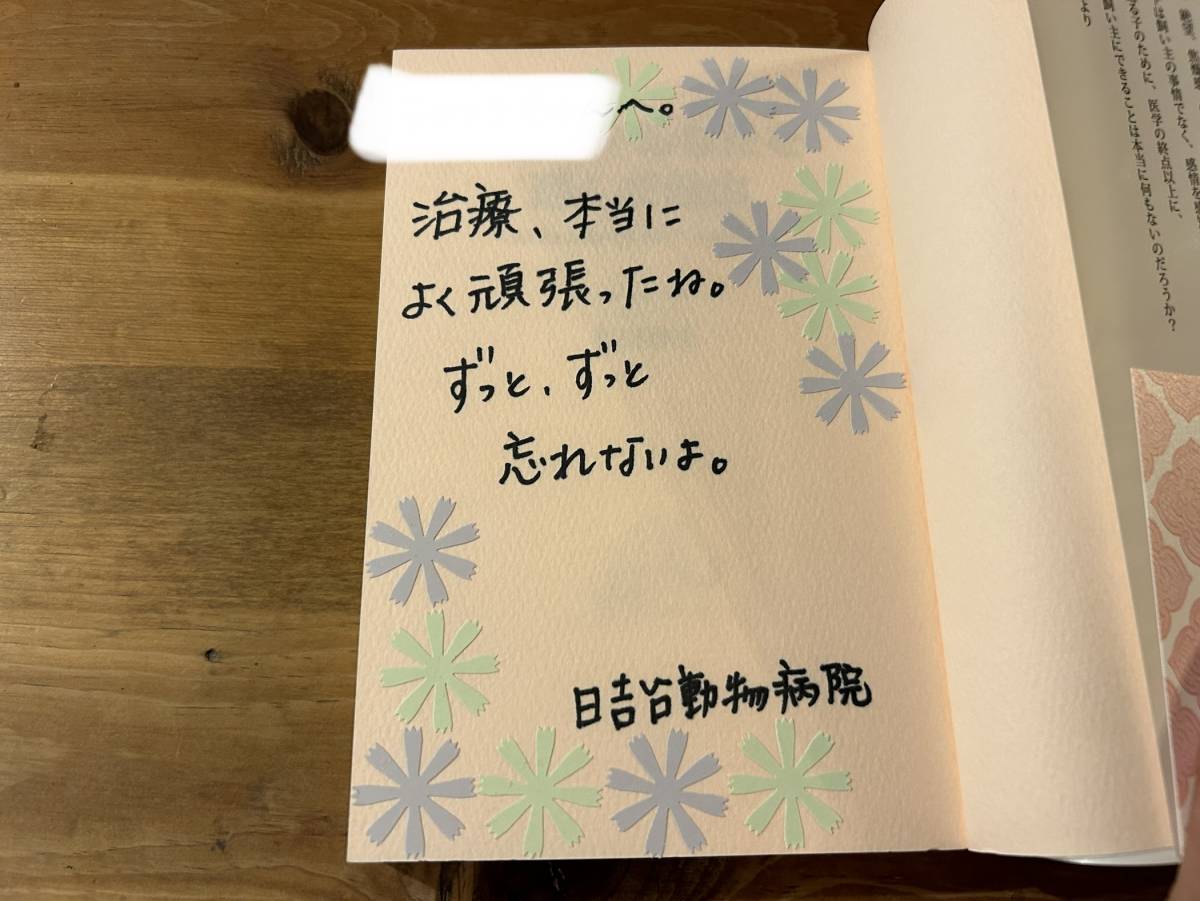 へ。
治療、本当に
よく頑張ったね。
ずっと、ずっと
忘れないよ。
日吉台動物病院
絶望、焦燥
は飼い主の事情でなく、感情を
る子のために、医学の終点以上に、
飼い主にできることは本当に何もないのだろうか？
より